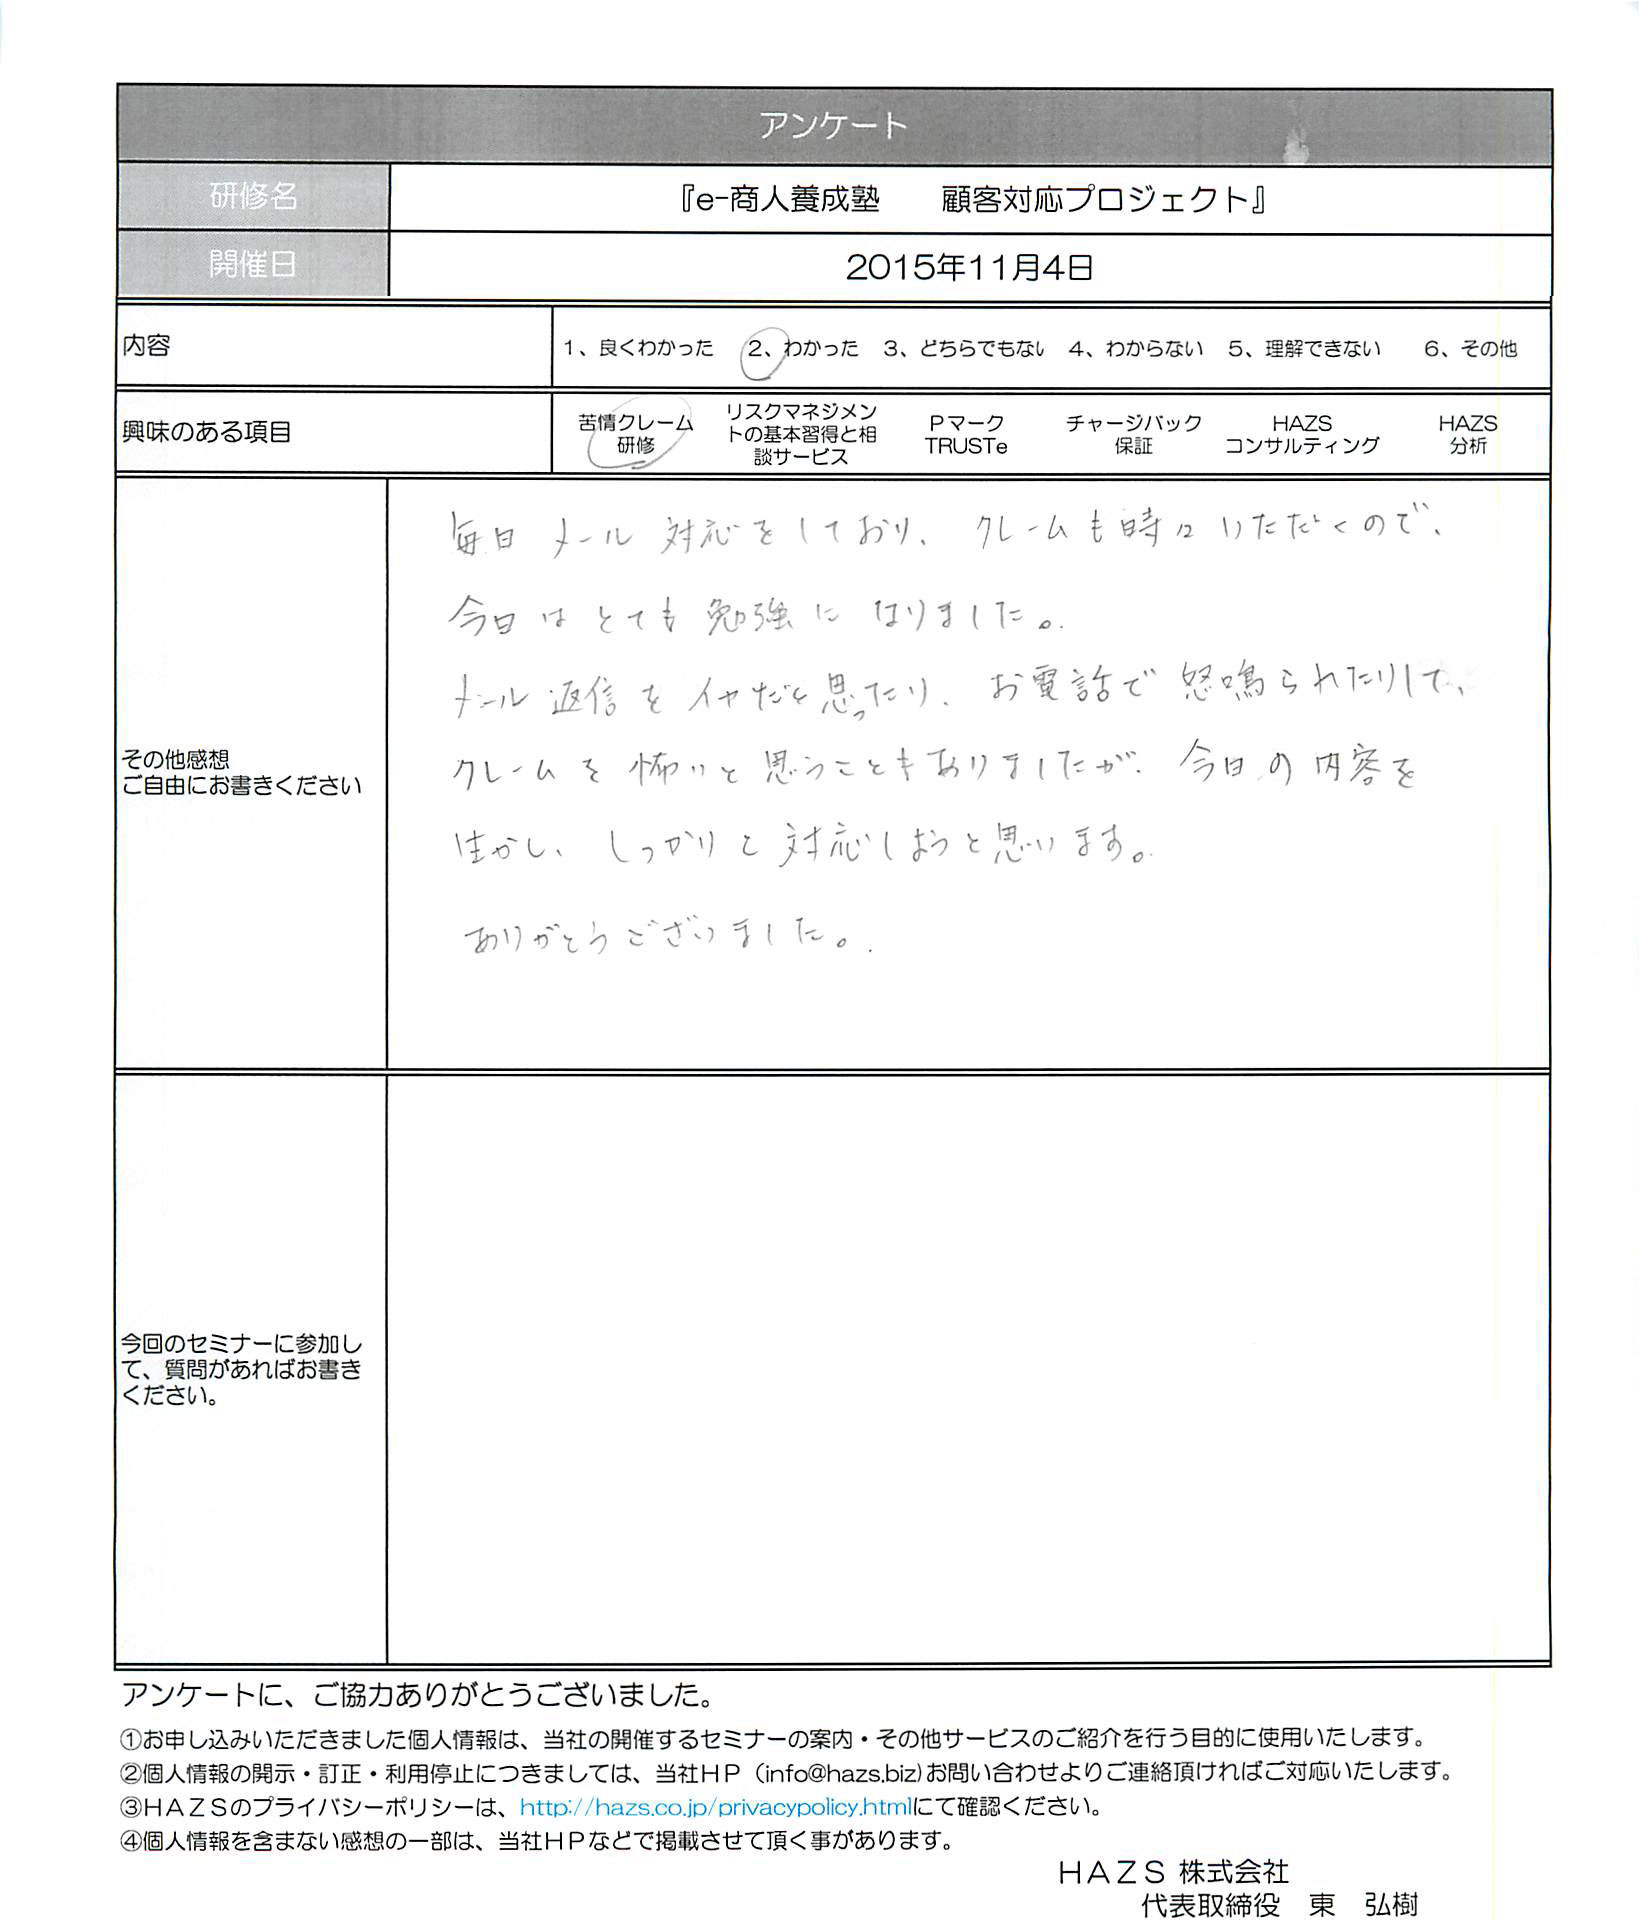 アンケート
研修名
『e-商人養成塾　　顧客対応プロジェクト』
開催日
2015年11月4日
内容
1、良くわかった　2、わかった　3、どちらでもない　4、わからない　5、理解できない　6、その他
興味のある項目
苦情クレーム
研修
リスクマネジメン
トの基本習得と相
談サービス
Pマーク
TRUSTe
チャージバック
保証
HAZS
コンサルティング
HAZS
分析
その他感想
ご自由にお書きください
毎日メール対応をしており、クレームも時々いただくので、
今日はとても勉強になりました。
メール返信をイヤだと思ったり、お電話で怒鳴られたりして、
クレームを怖いと思うこともありましたが、今日の内容を
生かし、しっかりと対応しようと思います。
ありがとうございました。
今回のセミナーに参加し
て、質問があればお書き
ください。
アンケートに、ご協力ありがとうございました。
①お申し込みいただきました個人情報は、当社の開催するセミナーの案内・その他サービスのご紹介を行う目的に使用いたします。
②個人情報の開示・訂正・利用停止につきましては、当社HP（info@hazs.biz)お問い合わせよりご連絡頂ければご対応いたします。
③HAZSのプライバシーポリシーは、http://hazs.co.jp/privacypolicy.htmlにて確認ください。
④個人情報を含まない感想の一部は、当社HPなどで掲載させて頂く事があります。
HAZS 株式会社
代表取締役　東　弘樹